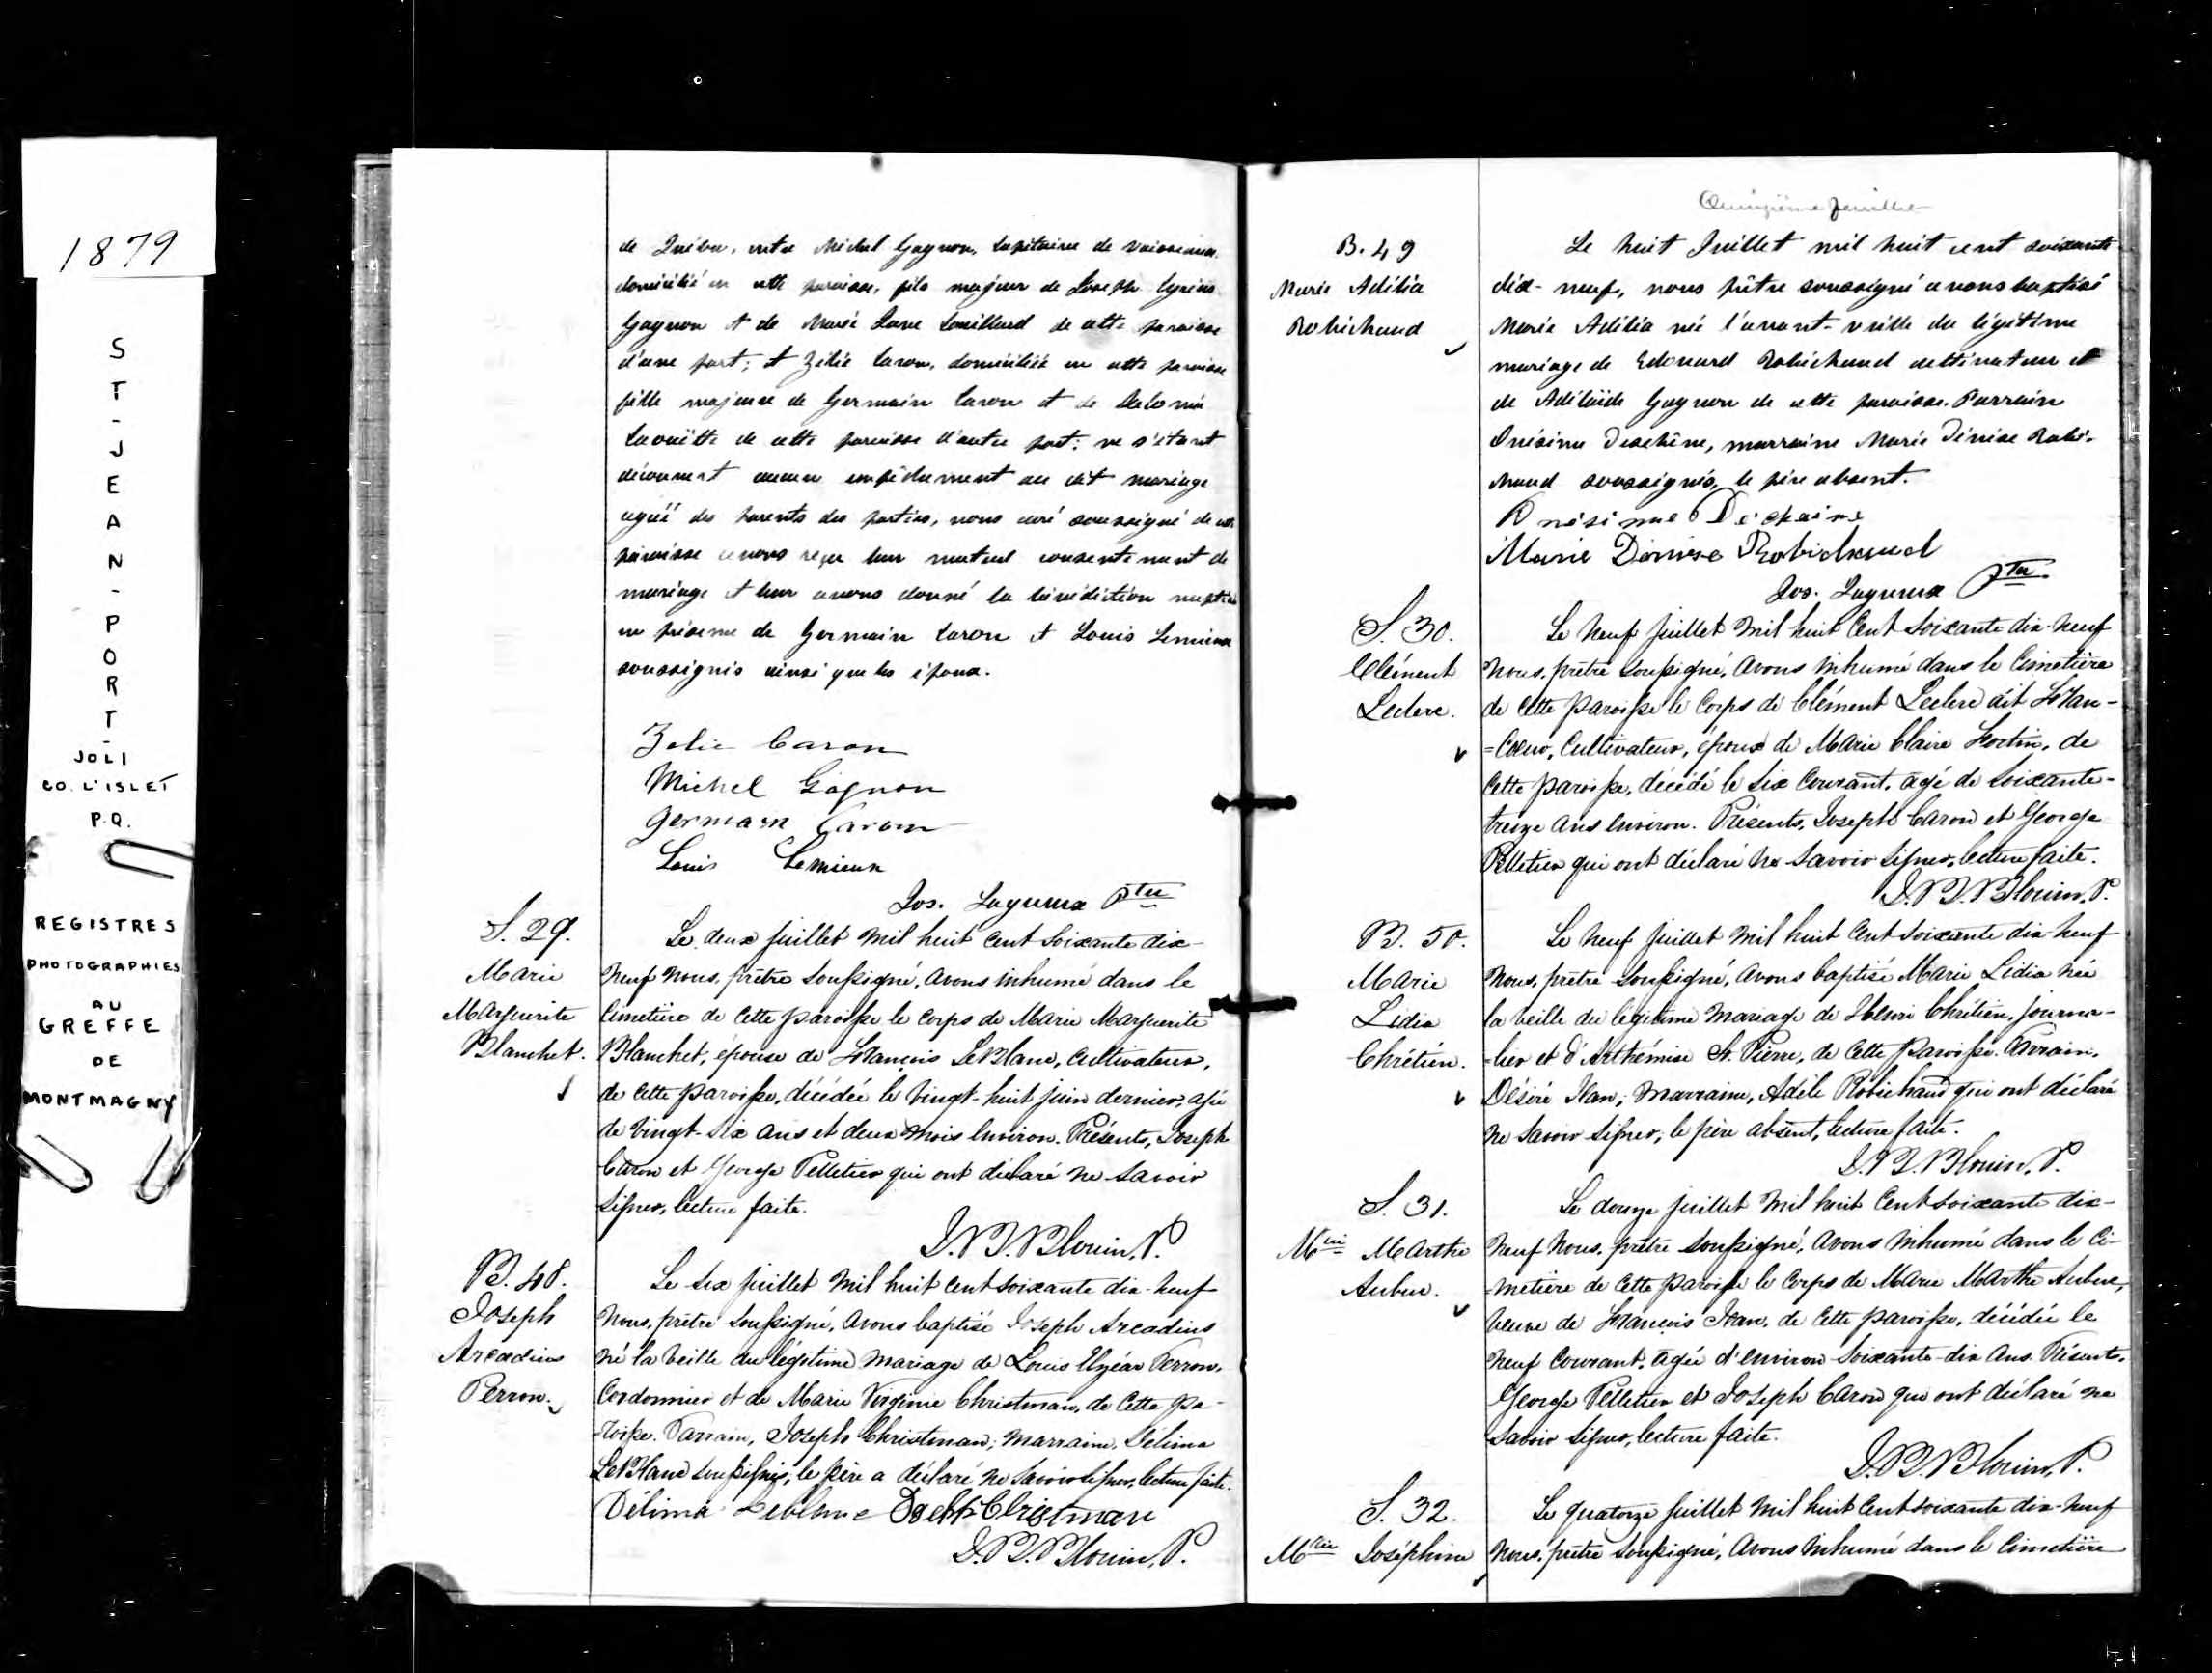 1879
S
T
-
J
E
A
N
-
P
O
R
T
-
JOLI
CO. L'ISLET
P.Q.
REGISTRES
PHOTOGRAPHIES
AU
GREFFE
DE
MONTMAGNY
de Québec, entre Michel Gagnon, Capitaine de vaisseaux
domicilié en cette paroisse, fils majeur de Joseph Cyrias
Gagnon et de Marie Luce Souillard de cette paroisse
d'une part; et Zélie Caron, domiciliée en cette paroisse
fille majeure de Germain Caron et de Salomé
Chouette de cette paroisse d'autre part: ne s'étant
découvert aucun empêchement au dit mariage
agréé des parents des parties, nous curé soussigné de cette
paroisse avons reçu leur mutuel consentement de
mariage et leur avons donné la bénédiction nuptiale
en présence de Germain Caron et Louis Lemieux
soussignés ainsi que les époux.
Zelie Caron
Michel Gagnon
Germain Caron
Louis Lemieux
Jos. Lagueux Ptre
S. 29.
Marie
Marguerite
Blanchet.
Le deux juillet mil huit cent soixante dix-
neuf nous, prêtre soussigné, avons inhumé dans le
Cimetière de cette paroisse le corps de Marie Marguerite
Blanchet, épouse de François LeBlanc, Cultivateur,
de cette paroisse, décédée le vingt-huit juin dernier, agée
de vingt-six ans et deux mois environ. Présents, Joseph
Caron et George Pelletier qui ont déclaré ne savoir
signer, lecture faite.
J.B. Blouin, P.
B. 48.
Joseph
Arcadius
Perron.
Le six juillet mil huit cent soixante dix-neuf
nous, prêtre soussigné, avons baptisé Joseph Arcadius
né la veille du légitime mariage de Louis Elzéar Perron,
Cordonnier et de Marie Virginie Christman, de cette pa-
-roisse. Parrain, Joseph Christman; marraine, Délima
LeBlanc soussignés, le père a déclaré ne savoir signer, lecture faite.
Délima Leblanc Joseph Christman
J.B. Blouin, P.
Quinzième feuillet
B. 49
Marie Adélia
Robichaud
Le huit Juillet mil huit cent soixante
dix-neuf, nous prêtre soussigné avons baptisé
Marie Adélia née l'avant-veille du légitime
mariage de Edouard Robichaud cultivateur et
de Adélaïde Gagnon de cette paroisse. Parrain
Onésime Deschêne, marraine Marie Dénise Robi-
chaud soussignés, le père absent.
Onésime Dechaine
Marie Denise Robichaud
Jos. Lagueux Ptre
S. 30.
Clément
Leclerc.
Le neuf juillet mil huit cent soixante dix-neuf
nous, prêtre soussigné, avons inhumé dans le Cimetière
de cette paroisse le corps de Clément Leclerc dit Fran-
=coeur, Cultivateur, époux de Marie Claire Fortin, de
cette paroisse, décédé le six courant, agé de soixante-
treize ans environ. Présents, Joseph Caron et George
Pelletier qui ont déclaré ne savoir signer, lecture faite.
J.B. Blouin, P.
B. 50.
Marie
Lidia
Chrétien.
Le neuf juillet mil huit cent soixante dix-neuf
nous, prêtre soussigné, avons baptisé Marie Lidia née
la veille du légitime mariage de Henri Chrétien, journa-
-lier et d'Arthémise St. Pierre, de cette paroisse. Parrain,
Désiré Jean; marraine, Adèle Robichaud qui ont déclaré
ne savoir signer; le père absent, lecture faite.
J.B. Blouin, P.
S. 31.
Mrie Marthe
Aubue.
Le douze juillet mil huit cent soixante dix-
neuf nous, prêtre soussigné, avons inhumé dans le Ci-
-metière de cette paroisse le corps de Marie Marthe Aubue,
veuve de François Jean, de cette paroisse, décédée le
neuf courant, agée d'environ soixante-dix ans. Présents,
George Pelletier et Joseph Caron qui ont déclaré ne
savoir signer, lecture faite.
J.B. Blouin, P.
S. 32.
Mrie Joséphine
Le quatorze juillet mil huit cent soixante dix-neuf
nous, prêtre soussigné, avons inhumé dans le Cimetière